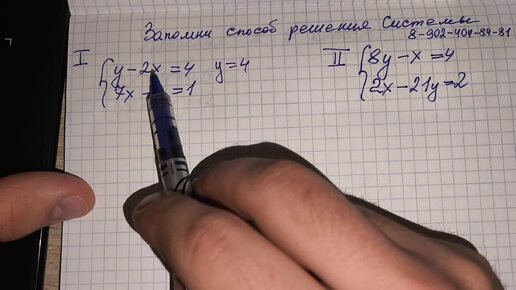 Запомни способ решения Системы
8-902-404-84-81
I { y - 2x = 4 y = 4
7x - = 1
II { 8y - x = 4
2x - 21y = 2